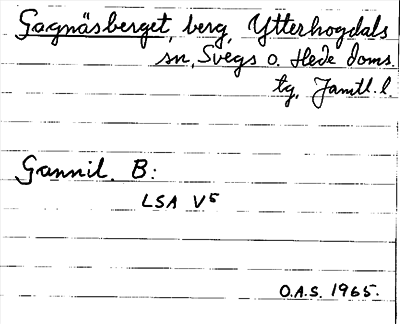 Gagnäsberget, berg, Ytterhogdals
sn, Svegs o. Hede doms.
tg, Jämtl. l.
Gannil. B:
LSA V5
O.A.S. 1965.